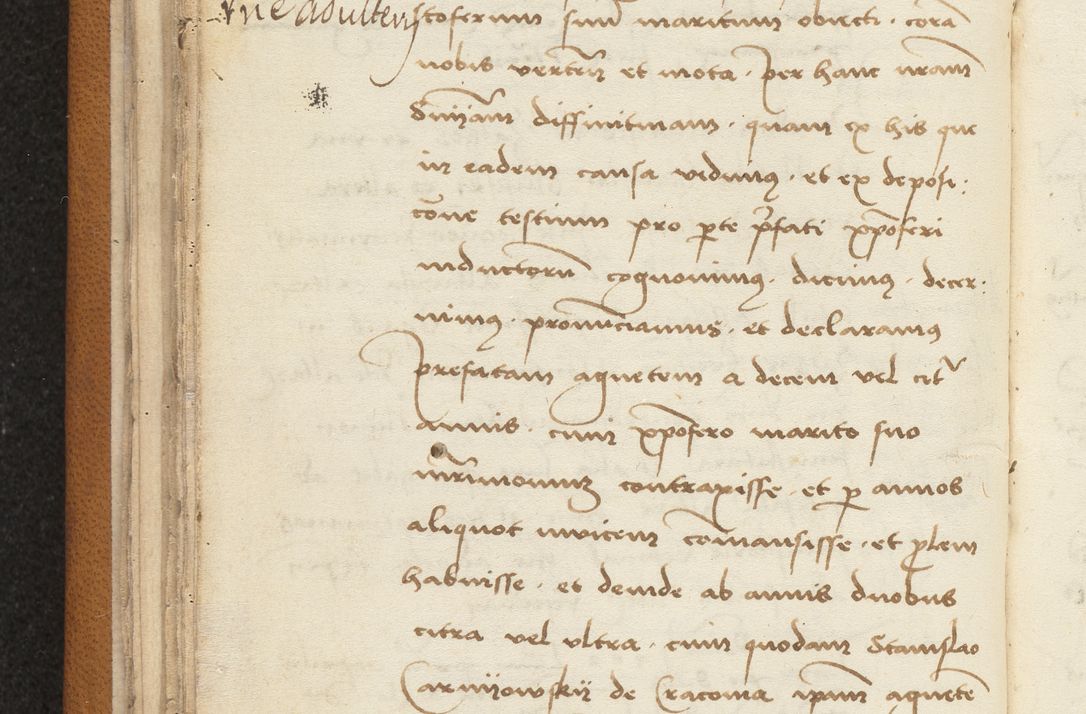 ne adulterij stoferum suum maritum obiecti · corā
nobis vertētis et mota · per hanc nrām
Snijām diffinitivam · quam ex his que
in eadem causa vidimus · et ex deposi:
cōne testium pro pte p̄fati xp̄oferi
inductorū cognovimus · dicimus · decer:
nimus · pronūciamus · et declaramus
prefatam agnetem a decem vel cit
annis · cum xp̄ofero marito suo
mr̄imonium contraxisse · et p annos
aliquot invicem cōmansisse · et plem
habuisse · et deinde ab annis duobus
citra vel ultra · cum quodam Stanislao
Carnijowskij de Cracovia ip̄am agnetē